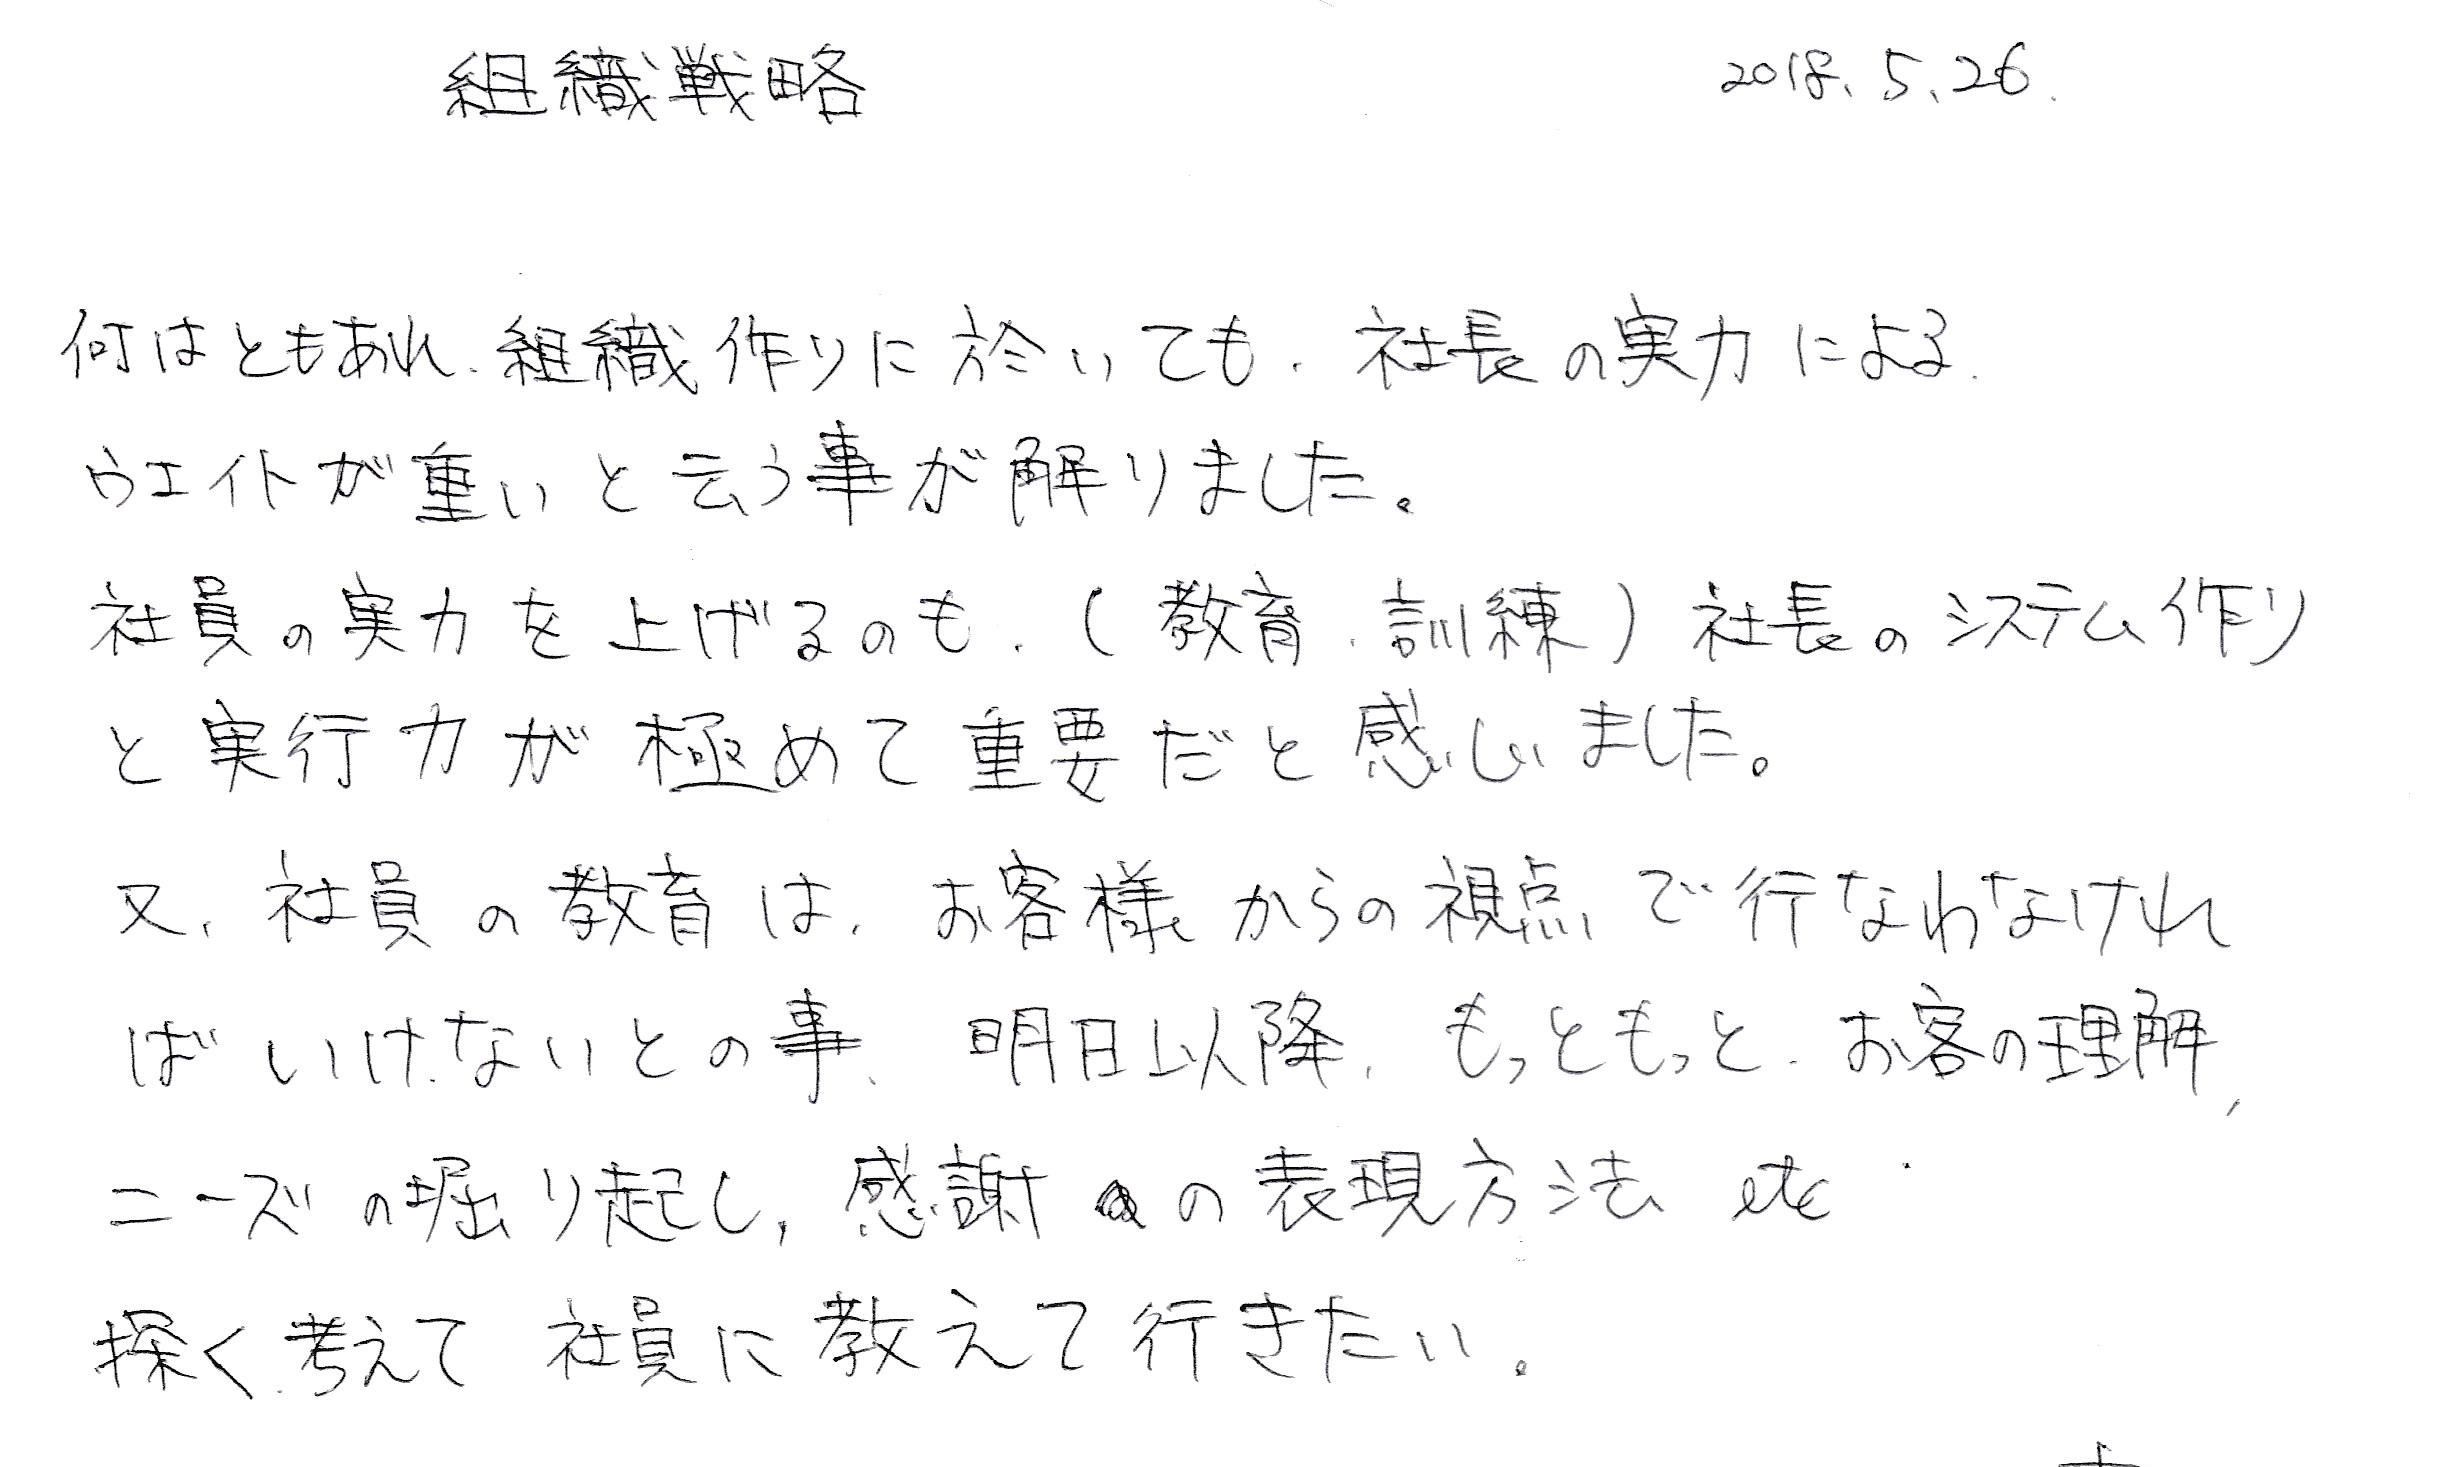 組織戦略 2018.5.26.
何はともあれ、組織作りに於いても、社長の実力による
ウエイトが重いと云う事が解りました。
社員の実力を上げるのも、(教育、訓練)社長のシステム作り
と実行力が極めて重要だと感じいました。
又、社員の教育は、お客様からの視点で行なわなければ
ばいけないとの事、明日以降、もっともっと、お客の理解、
ニーズの堀り起し、感謝の表現方法 etc
探く考えて 社員に教えて行きたい。